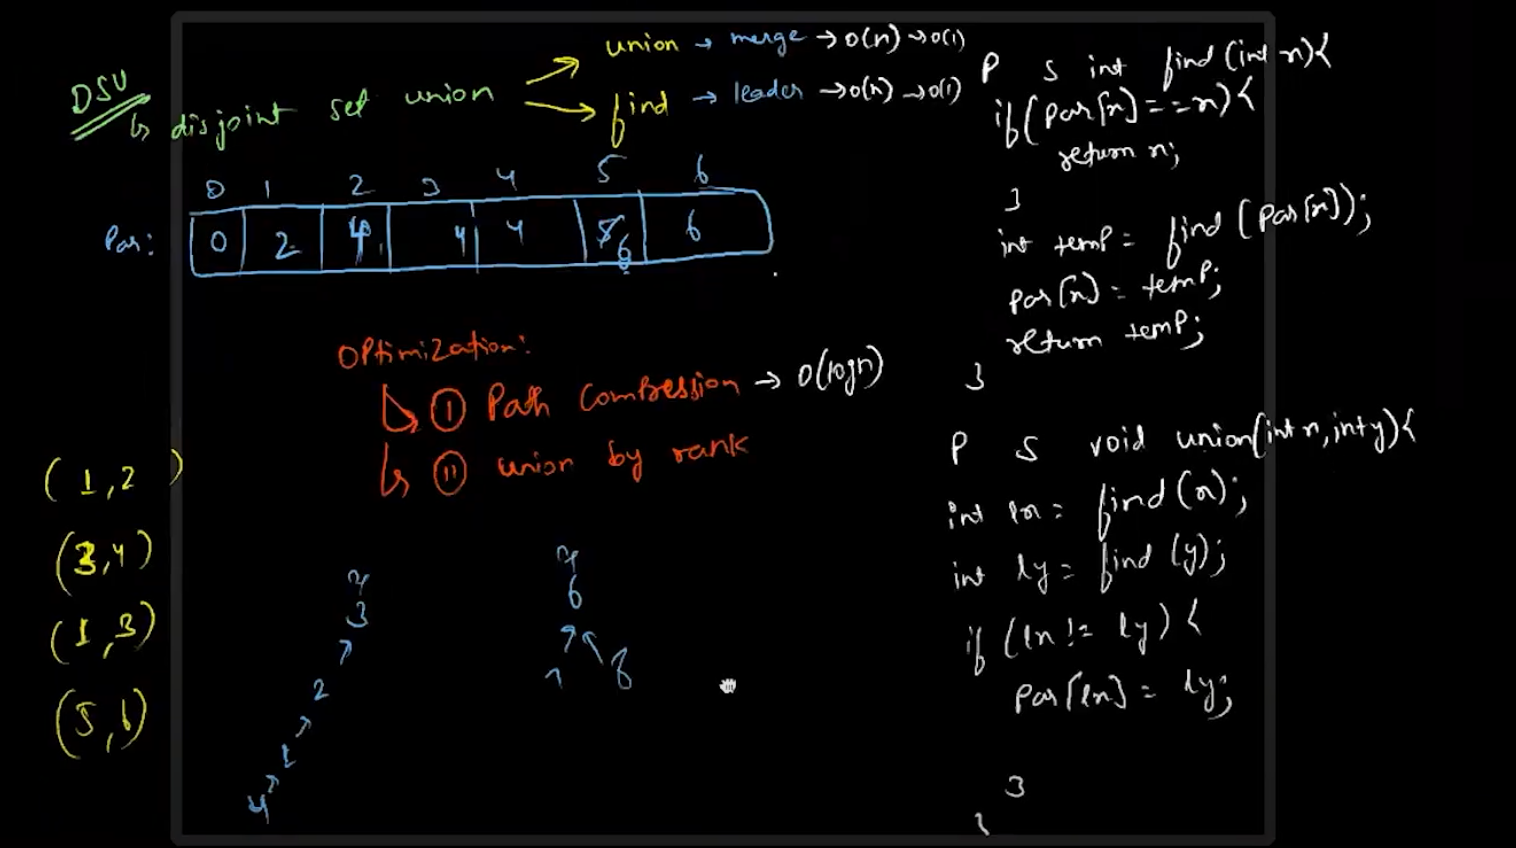 DSU
↳ disjoint set union
union → merge → O(n) → O(1)
find → leader → O(n) → O(1)
0 1 2 3 4 5 6
Par: 0 2 4 4 4 5 6 6
Optimization:
↳ I Path Compression → O(logn)
↳ II union by rank
(1,2)
(3,4)
(1,3)
(5,6)
3
6
2
1
4
P S int find(int x){
if(par[x]==x){
return x;
}
int temp = find(par[x]);
par[x] = temp;
return temp;
}
P S void union(int x, int y){
int lx = find(x);
int ly = find(y);
if(lx != ly){
par[lx] = ly;
}
}